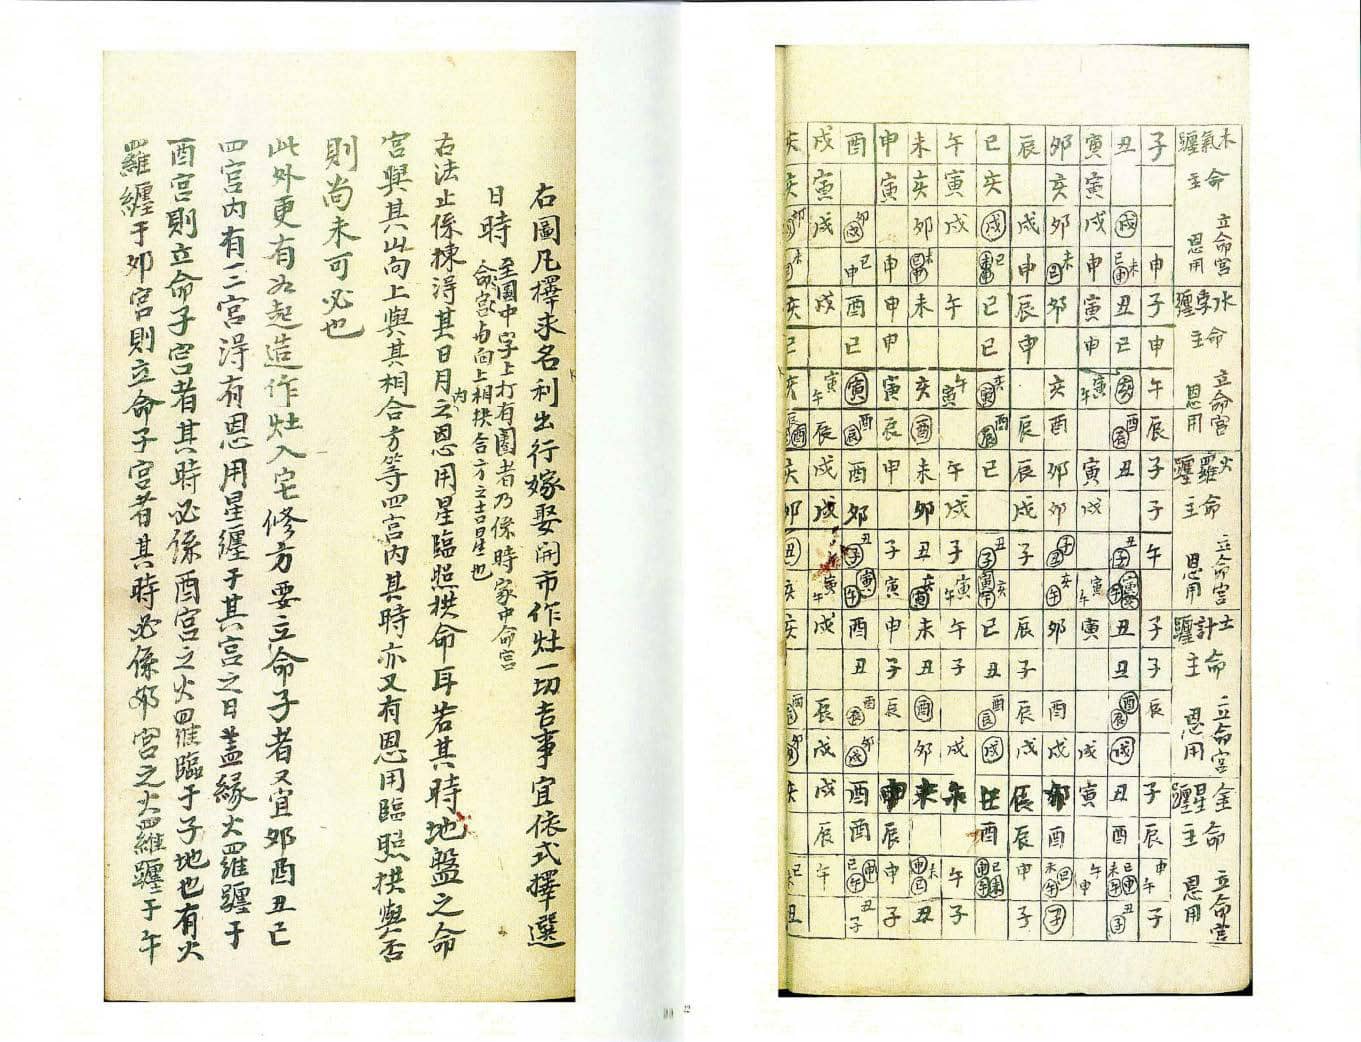 木氣纏 命主 立命宮 恩用 水孛纏 命主 立命宮 恩用 火羅纏 命主 立命宮 恩用 土計纏 命主 立命宮 恩用 金星纏 命主 立命宮 恩用
子 申 子 申 午 辰 子 子 午 子 子 辰 子 辰 申午 子
丑 戌 丑 巳 亥 酉辰 丑 丑子 丑 丑 酉辰 戌 丑 酉 丑子
寅 寅 戌 申 寅 申 寅午 寅 戌 寅午 寅 戌 寅 午申
卯 亥 卯 未 卯 亥 酉 卯 卯 子丑 亥午 卯 酉 戌 卯 酉 子
辰 戌 申 辰 申 辰 辰 戌 子 辰 子 辰 戌 辰 辰 申 子
巳 亥 戌 巳 巳 亥寅 酉辰 巳 丑子 寅午 巳 丑 酉辰 戌 巳 酉
午 寅 戌 午 午寅 午 戌 子 寅午 午 子 戌 午 午 子
未 亥 卯 未 亥 酉 未 卯 丑 亥寅 未 丑 酉 卯 未 丑
申 寅 申 申 寅 辰 申 子 寅 申 子 辰 申 辰 申 子
酉 卯戌 巳申 酉 巳 寅 酉辰 酉 卯 丑子 寅午 酉 丑 酉辰 卯戌 酉 酉 巳申午 丑子
戌 寅 戌 戌 寅午 辰 戌 戌 寅午 戌 辰 戌 戌 辰 午
亥 亥 卯 未 亥 巳 亥 辰酉 亥 卯 丑 亥 亥 酉 卯 亥 巳 丑
右圖凡擇求名利出行嫁娶開市作灶一切吉事宜依式擇選
日時 至圖中字上打有圈者乃係時家中命宮
命宮與向上相拱合方之吉星也
右法止係揀淂其日月之恩用星臨照拱命耳若其時地盤之命
宮與其山向上與其相合方等四宮内其時亦又有恩用臨照拱與否
則尚未可必也
此外更有為起造作灶入宅修方要立命子者又宜卯酉丑巳
四宮内有一二宮淂有恩用星纏于其宮之日盖縁火羅纏于
酉宮則立命子宮者其時必係酉宮之火羅臨于子地也有火
羅纏于卯宮則立命子宮者其時必係卯宮之火羅纏于午